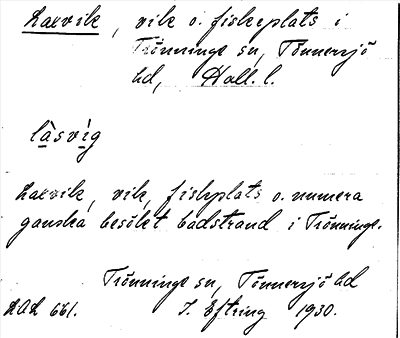 Laxvik, vik o. fiskeplats i
Trönninge sn, Tönnersjö
hd, Hall. l.
làsvìg
Laxvik, vik, fiskplats o. numera
ganska besökt badstrand i Trönninge.
Trönninge sn, Tönnersjö hd
LAL 661. I. Eftring 1930.